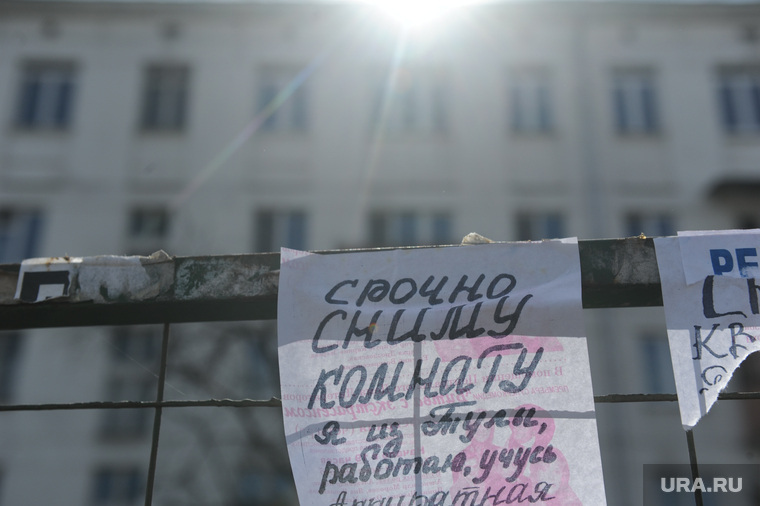 срочно
СНИМУ
КОМНАТУ
я из Тулы,
работаю, учусь
Аккуратная
РЕ
КВ
URA.RU